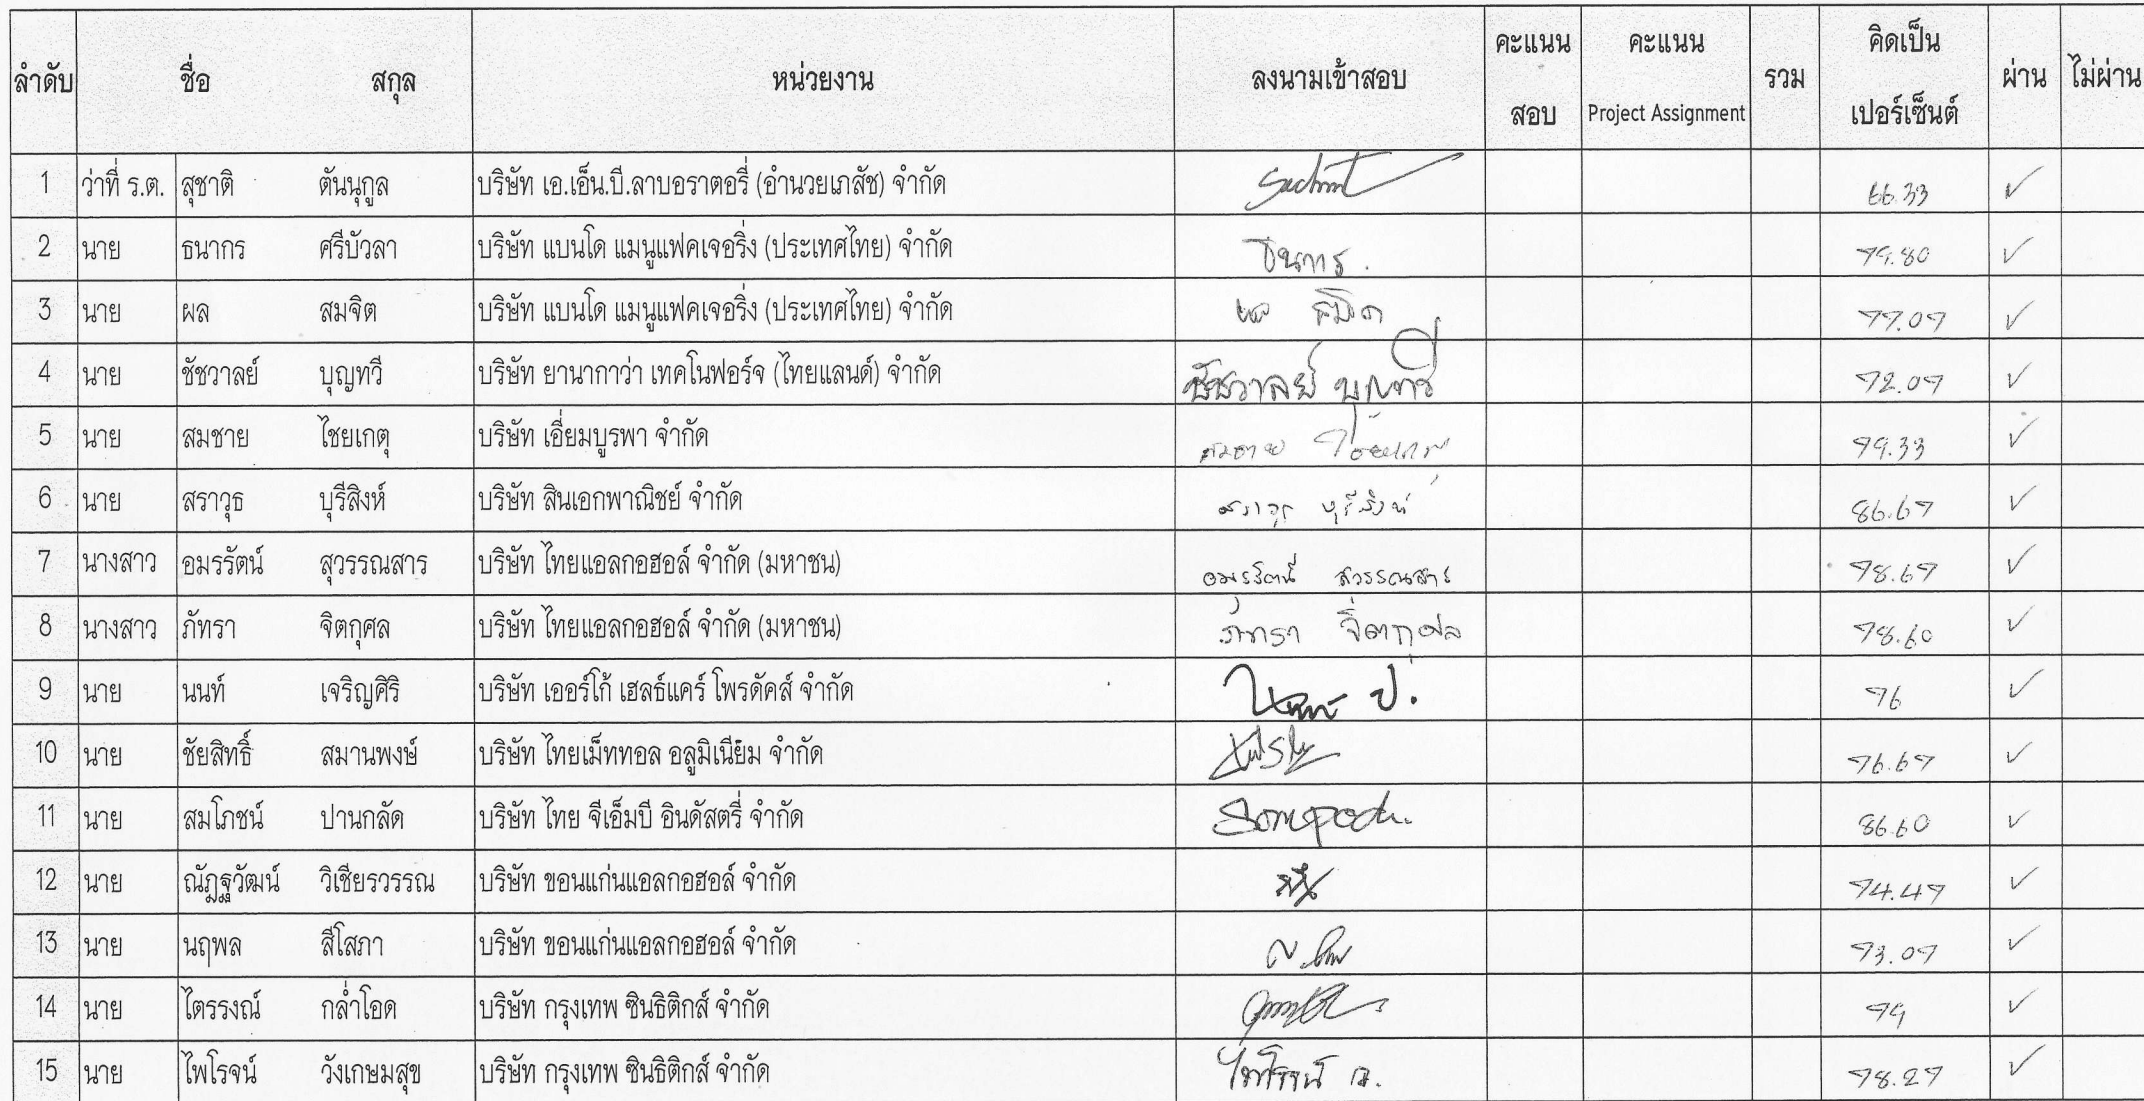 ลำดับ ชื่อ สกุล หน่วยงาน ลงนามเข้าสอบ คะแนน สอบ คะแนน Project Assignment รวม คิดเป็น เปอร์เซ็นต์ ผ่าน ไม่ผ่าน
1 ว่าที่ ร.ต. สุชาติ ตันนุกูล บริษัท เอ.เอ็น.บี.ลาบอราตอรี่ (อำนวยเภสัช) จำกัด 66.33 ✓
2 นาย ธนากร ศรีบัวลา บริษัท แบนโด แมนูแฟคเจอริ่ง (ประเทศไทย) จำกัด ธนากร. 79.80 ✓
3 นาย ผล สมจิต บริษัท แบนโด แมนูแฟคเจอริ่ง (ประเทศไทย) จำกัด ผล สมจิต 77.07 ✓
4 นาย ชัชวาลย์ บุญทวี บริษัท ยานากาว่า เทคโนฟอร์จ (ไทยแลนด์) จำกัด ชัชวาลย์ บุญทวี 72.07 ✓
5 นาย สมชาย ไชยเกตุ บริษัท เอี่ยมบูรพา จำกัด สมชาย ไชยเกตุ 79.33 ✓
6 นาย สราวุธ บุรีสิงห์ บริษัท สินเอกพาณิชย์ จำกัด สราวุธ บุรีสิงห์ 86.67 ✓
7 นางสาว อมรรัตน์ สุวรรณสาร บริษัท ไทยแอลกอฮอล์ จำกัด (มหาชน) อมรรัตน์ สุวรรณสาร 78.67 ✓
8 นางสาว ภัทรา จิตกุศล บริษัท ไทยแอลกอฮอล์ จำกัด (มหาชน) ภัทรา จิตกุศล 78.60 ✓
9 นาย นนท์ เจริญศิริ บริษัท เออร์โก้ เฮลธ์แคร์ โพรดัคส์ จำกัด 76 ✓
10 นาย ชัยสิทธิ์ สมานพงษ์ บริษัท ไทยเม็ททอล อลูมิเนียม จำกัด 76.67 ✓
11 นาย สมโภชน์ ปานกลัด บริษัท ไทย จีเอ็มบี อินดัสตรี่ จำกัด 86.60 ✓
12 นาย ณัฏฐวัฒน์ วิเชียรวรรณ บริษัท ขอนแก่นแอลกอฮอล์ จำกัด 74.47 ✓
13 นาย นฤพล สีโสภา บริษัท ขอนแก่นแอลกอฮอล์ จำกัด 73.07 ✓
14 นาย ไตรรงณ์ กล่ำโอด บริษัท กรุงเทพ ซินธิติกส์ จำกัด 79 ✓
15 นาย ไพโรจน์ วังเกษมสุข บริษัท กรุงเทพ ซินธิติกส์ จำกัด ไพโรจน์ ว. 78.27 ✓